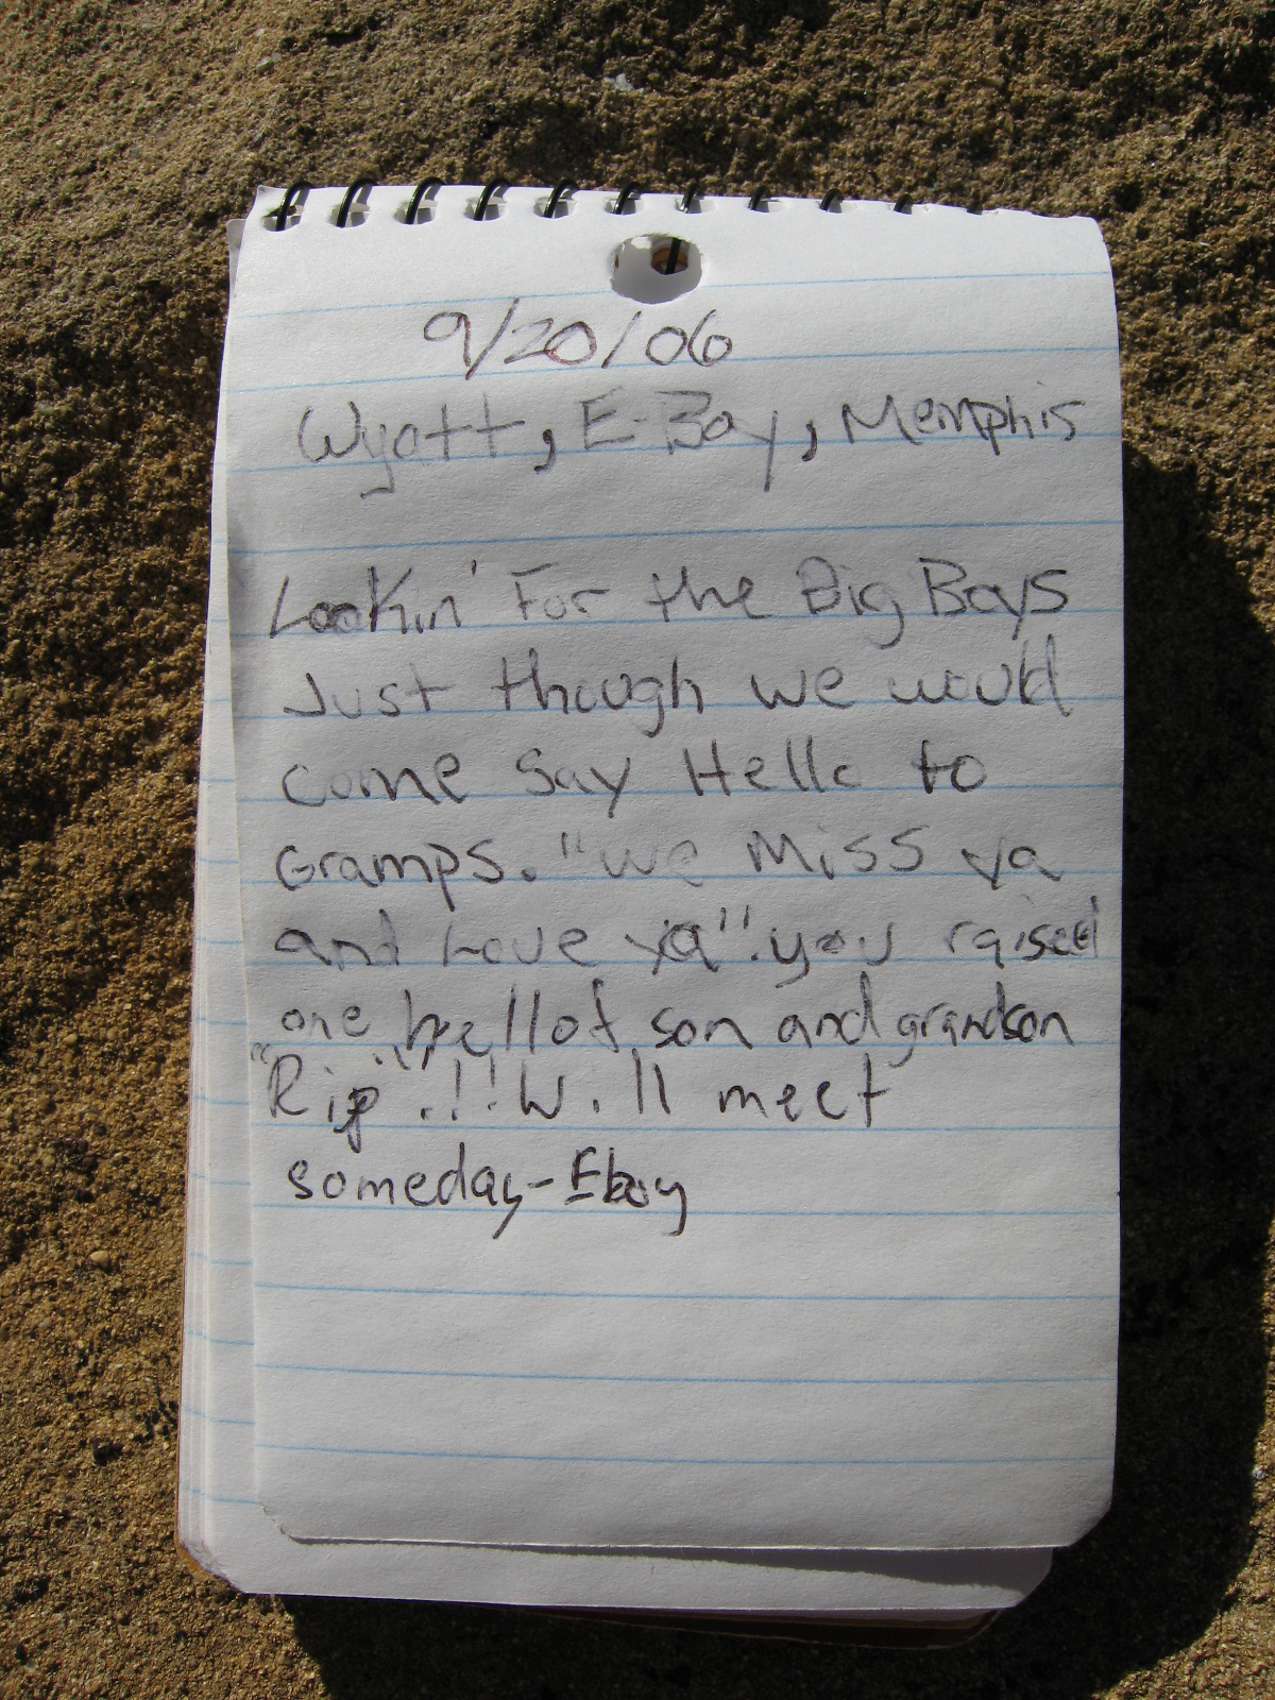 9/20/06
Wyatt, E-Boy, Memphis
Lookin' For the Big Boys
Just though we would
come say Hello to
Gramps. "We Miss ya
and Love ya". you raised
one hellof son and grandson
"Rip".!!! Will meet
someday-Eboy